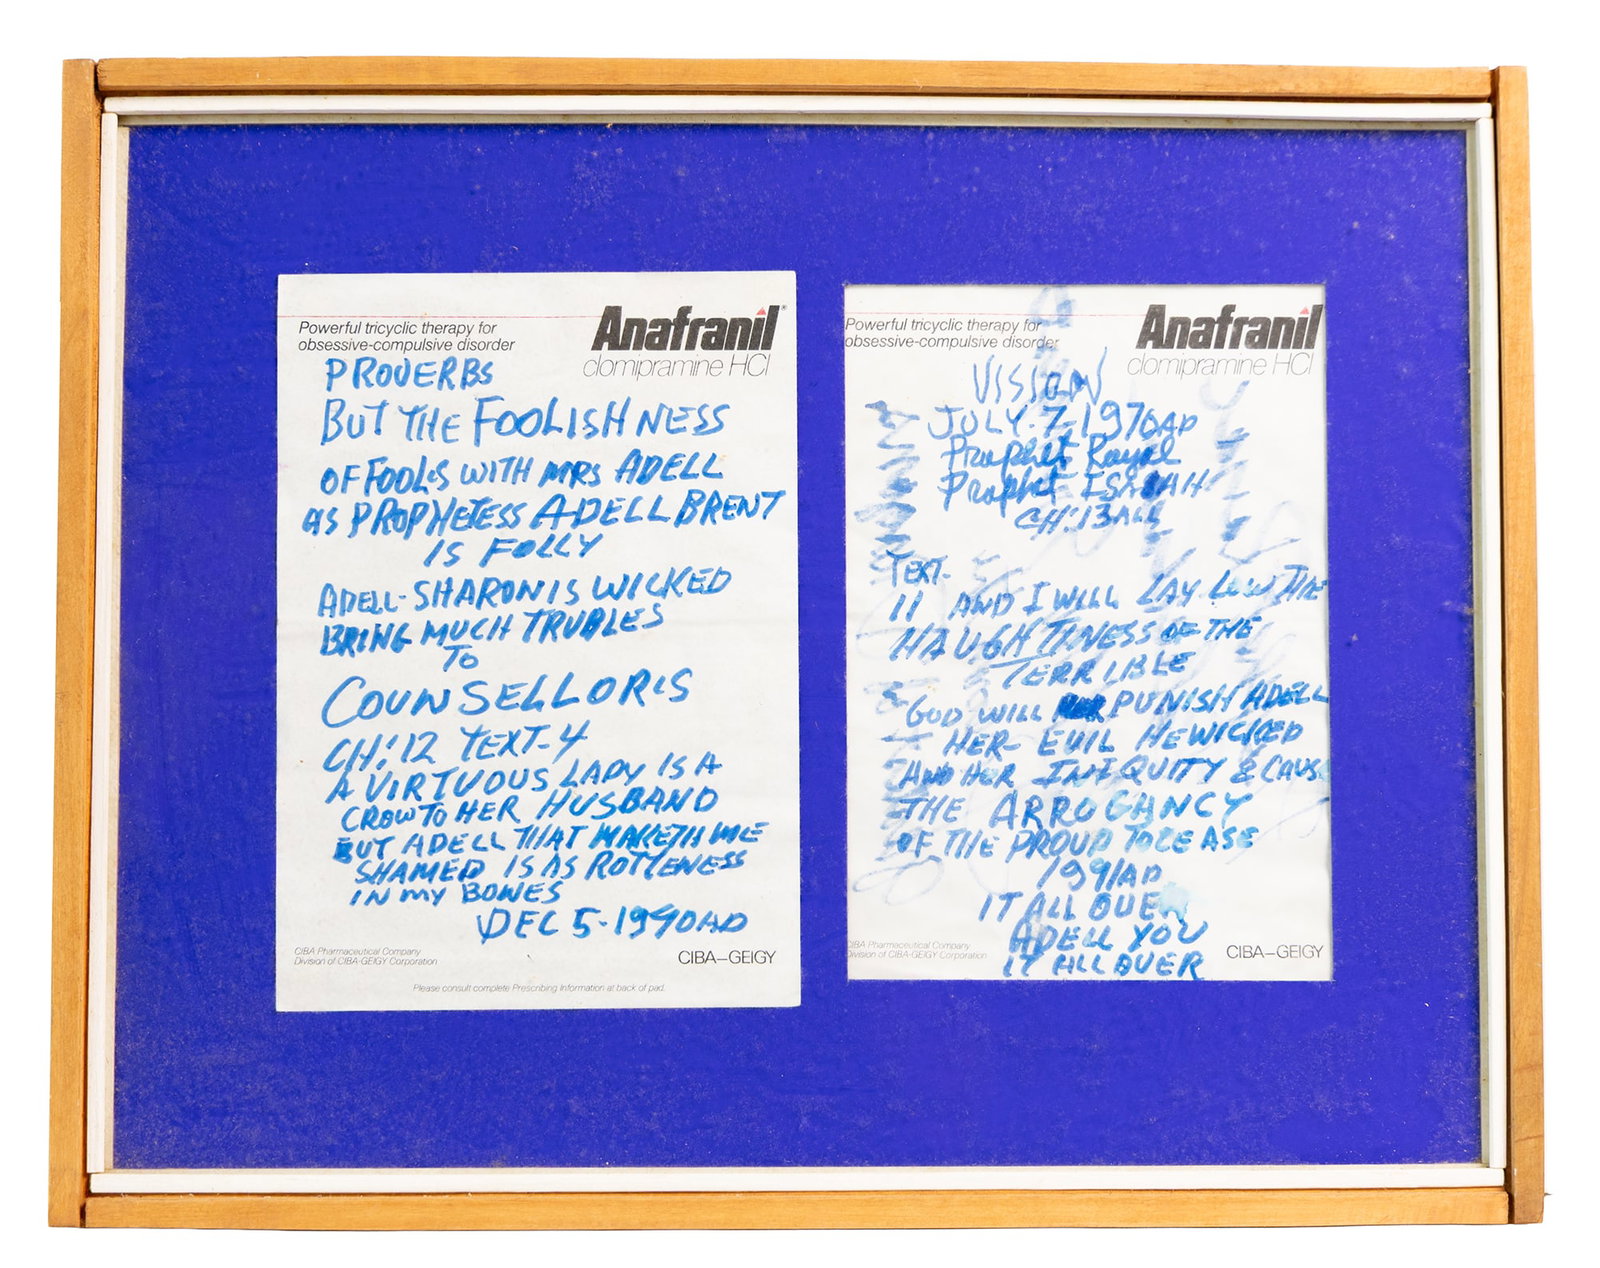 Powerful tricyclic therapy for
obsessive-compulsive disorder
Anafranil®
clomipramine HCl
PROVERBS
BUT THE FOOLISHNESS
OF FOOLS WITH MRS ADELL
AS PROPHETESS ADELL BRENT
IS FOLLY
ADELL-SHARON IS WICKED
BRING MUCH TRUBLES
TO
COUNSELLORS
CH:12 TEXT-4
A VIRTUOUS LADY IS A
CROW TO HER HUSBAND
BUT ADELL THAT MAKETH ME
SHAMED IS AS ROTTENESS
IN MY BONES
DEC 5-1990AD
CIBA Pharmaceutical Company
Division of CIBA-GEIGY Corporation
CIBA–GEIGY
Please consult complete Prescribing Information at back of pad.
Powerful tricyclic therapy for
obsessive-compulsive disorder
Anafranil
clomipramine HCl
VISSION
JULY.7-1970AD
Prophet Royal
Prophet ISAIAH
CH:13 ALL
TEXT-
11 AND I WILL LAY LOW THE
HAUGHTINESS OF THE
TERRIBLE
GOD WILL PUNISH ADELL
HER- EVIL HEWICKED
AND HER INIQUITY & CAUS
THE ARROGANCY
OF THE PROUD TO CEASE
1991AD
IT ALL OVER
ADELL YOU
IT ALL OVER
CIBA Pharmaceutical Company
Division of CIBA-GEIGY Corporation
CIBA–GEIGY